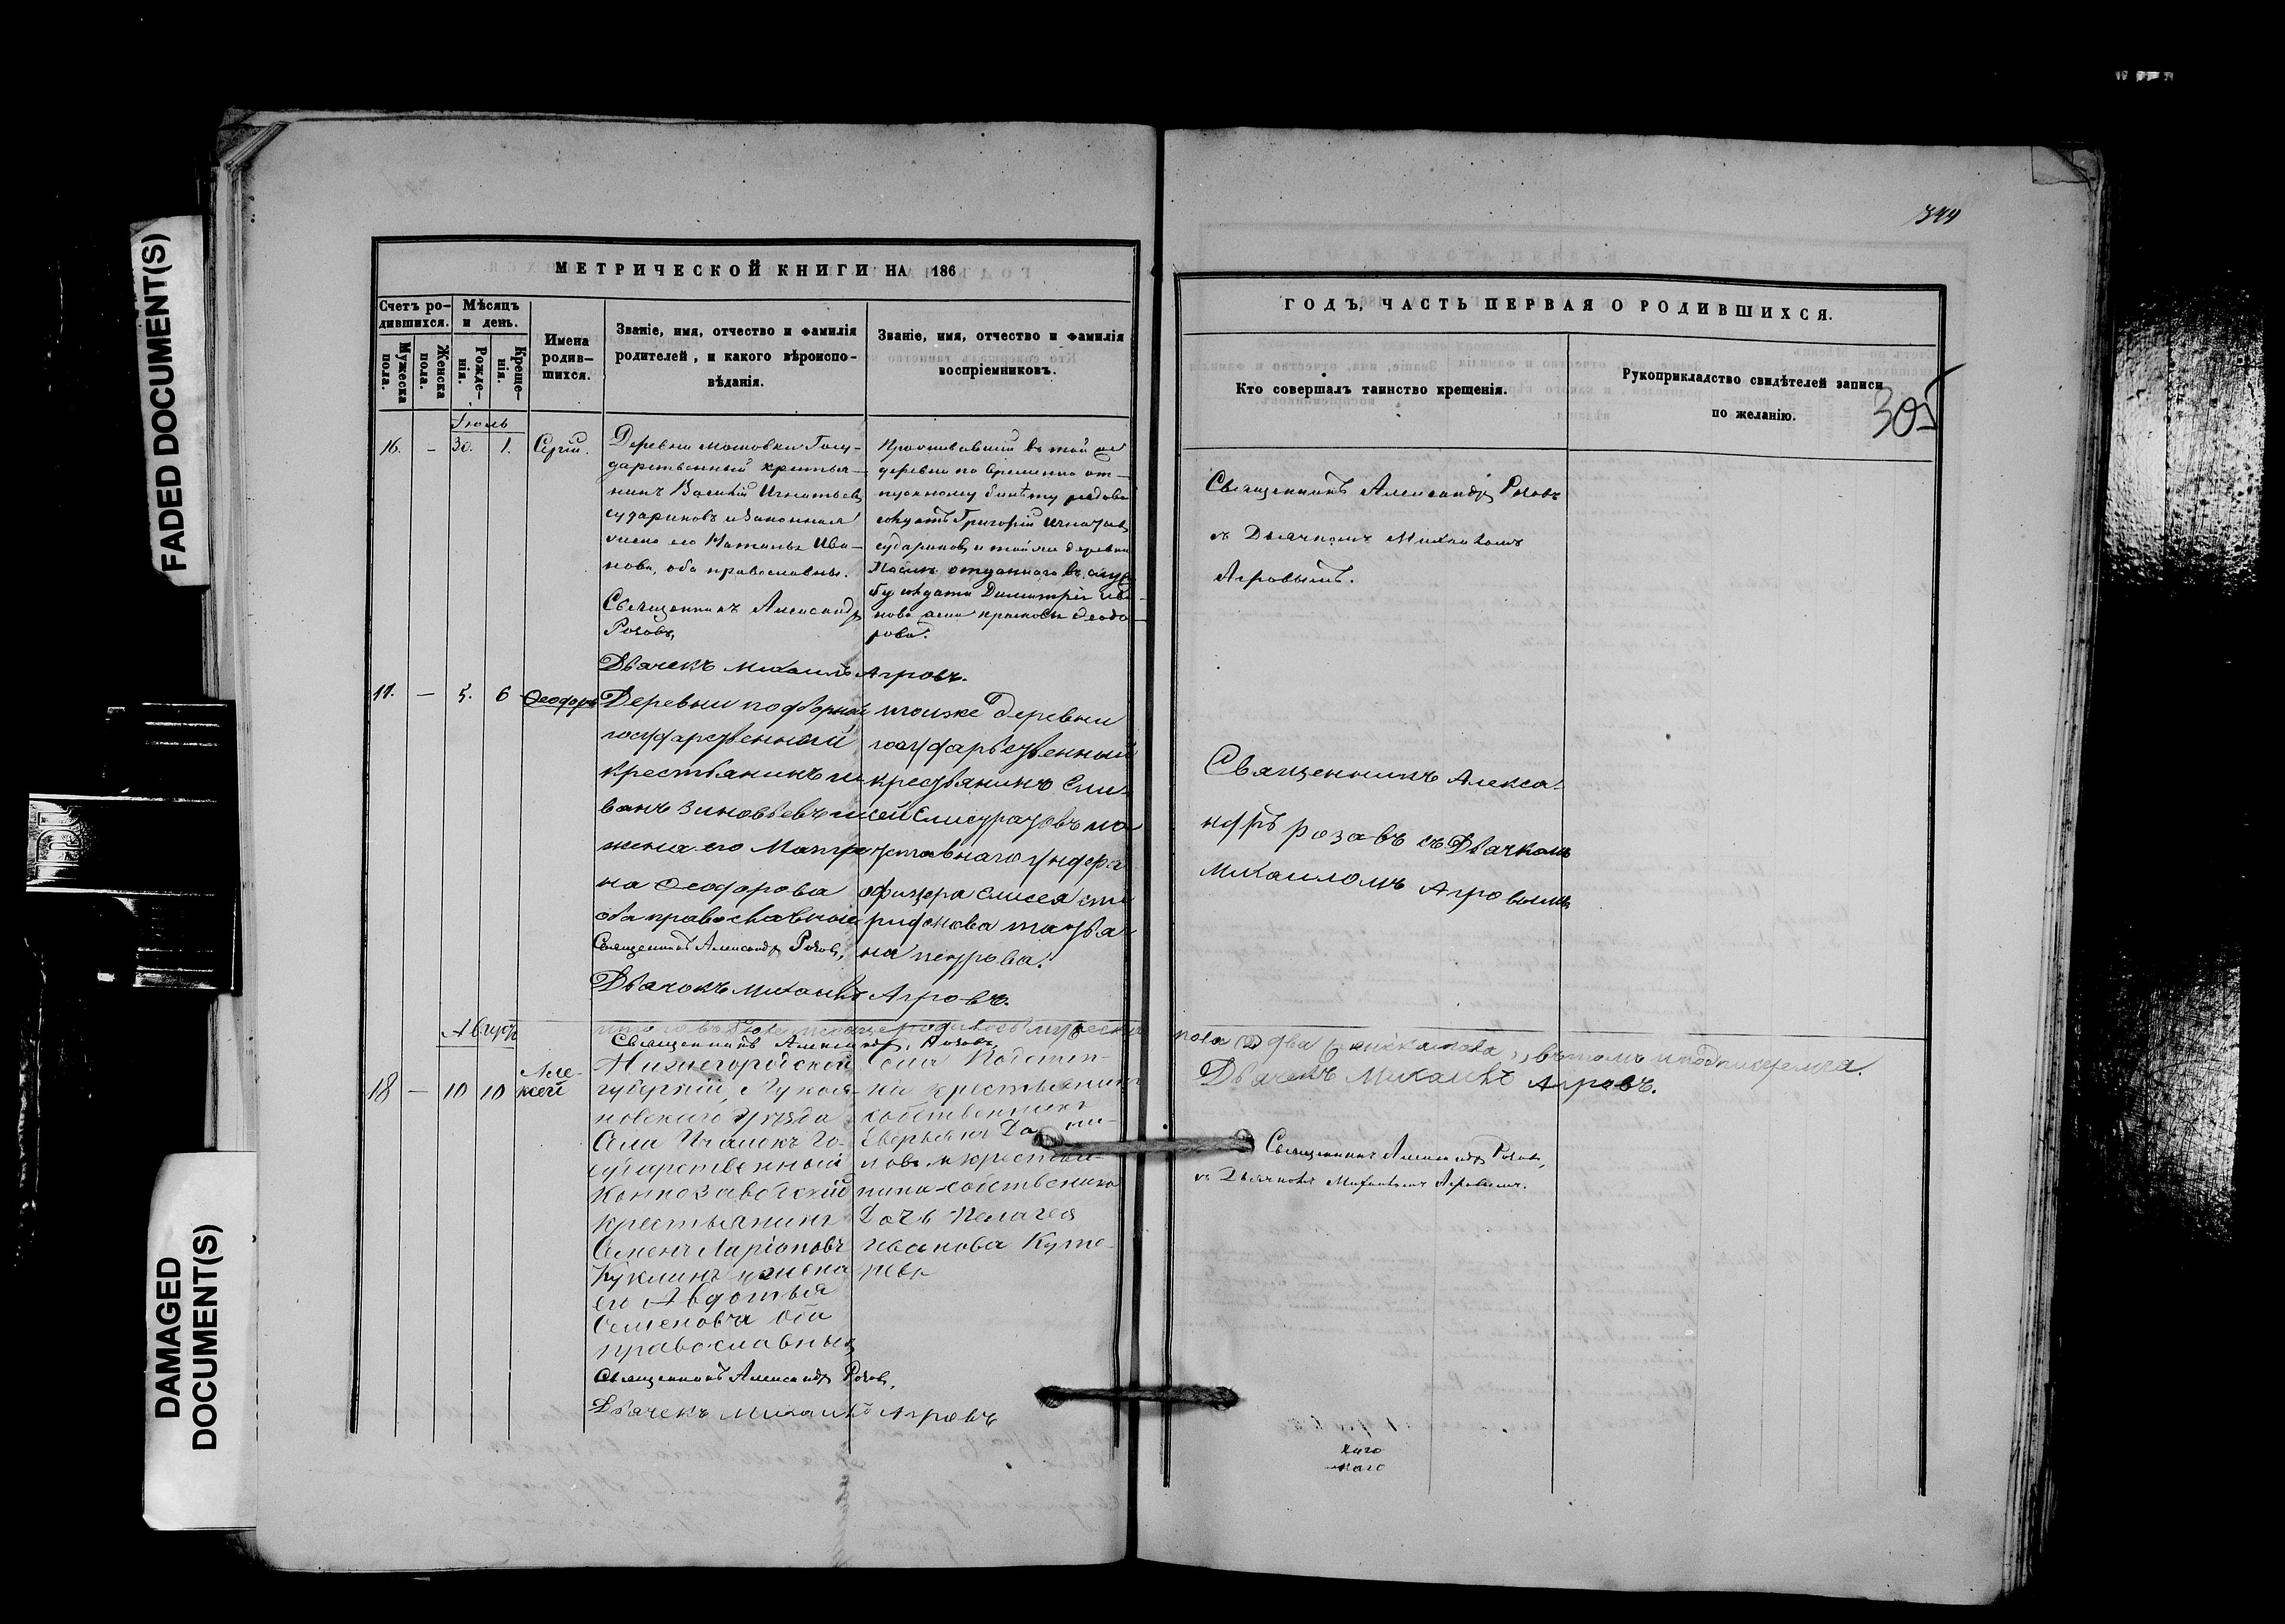 FADED DOCUMENT(S)
DAMAGED
DOCUMENT(S)
344
МЕТРИЧЕСКОЙ КНИГИ НА 186
Счетъ ро-
дившихся.
Мужеска
пола.
Женска
пола.
Мѣсяцъ
и день.
Рожде-
нія.
Креще-
нія.
Имена
родив-
шихся.
Званіе, имя, отчество и фамилія
родителей, и какого вѣроиспо-
вѣданія.
Званіе, имя, отчество и фамилія
воспріемниковъ.
Іюль
16. - 30. 1. Сергій.
Деревни Госу-
дарственный крестья-
нинъ Василій Игнатьевъ
Судариковъ и законная
жена его Наталья Ива-
нова, оба православны.
Священникъ Александръ
Розовъ,
Дьячекъ Михаилъ Агровъ.
Проживавшій въ той же
деревни по временно от-
пускному билету рядовой
солдатъ Григорій Игнатьевъ
Судариковъ и той же деревни
отданнаго въ служ
бу солдата Димитрія Ива
нова жена Ѳеодо-
рова.
17. — 5. 6 Ѳеодоръ
Деревни подборной
государственный
крестьянинъ И-
ванъ Зиновьевъ и
жена его Матре
на Ѳеодорова
оба православные
Священникъ Александръ Розовъ,
Дьячокъ Михаилъ Агровъ.
тоиже деревни
государственный
крестьянинъ Ели-
сей
отставнаго ундеръ
офицера Елисея
Татья
на петрова.
Августъ
итого въ Іюле месяце родилось мужеска
Священникъ Александръ Розовъ,
18 — 10 10 Але-
ксей
Нижегородской
губерніи, Лукоя-
новскаго уезда
Села Ичалокъ Го-
сударственный
Коннозаводскій
крестьянинъ
Семенъ Ларіоновъ
Куклинъ и жена
его Авдотья
Семенова Оба
православныя
Священникъ Александръ Розовъ,
Дьячекъ Михаилъ Агровъ
Села
крестьянинъ
собственникъ
и крестья-
нина собственика
Дочь Пелагея
Иванова
ГОДЪ, ЧАСТЬ ПЕРВАЯ О РОДИВШИХСЯ.
Кто совершалъ таинство крещенія.
Рукоприкладство свидѣтелей записи
по желанію.
305
Священникъ Александръ Розовъ
съ Дьячкомъ Михаиломъ
Агровымъ.
Священникъ Алекса-
ндръ розавъ съ Дьячкомъ
Михаиломъ Агровымъ
пола два женска пола въ томъ и подписуемся.
Дьячекъ Михаилъ Агровъ.
Священникъ Александръ Розовъ,
съ Дьячкомъ Михаиломъ Агровымъ.